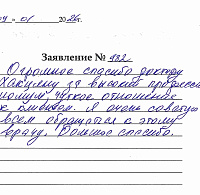 01 2026
Заявление № 482.
Огромное спасибо доктору
Хакулину за высокий професси
чуткое отношение
к клиентам. Я очень советую
всем обращаться к этому
врачу. Большое спасибо.